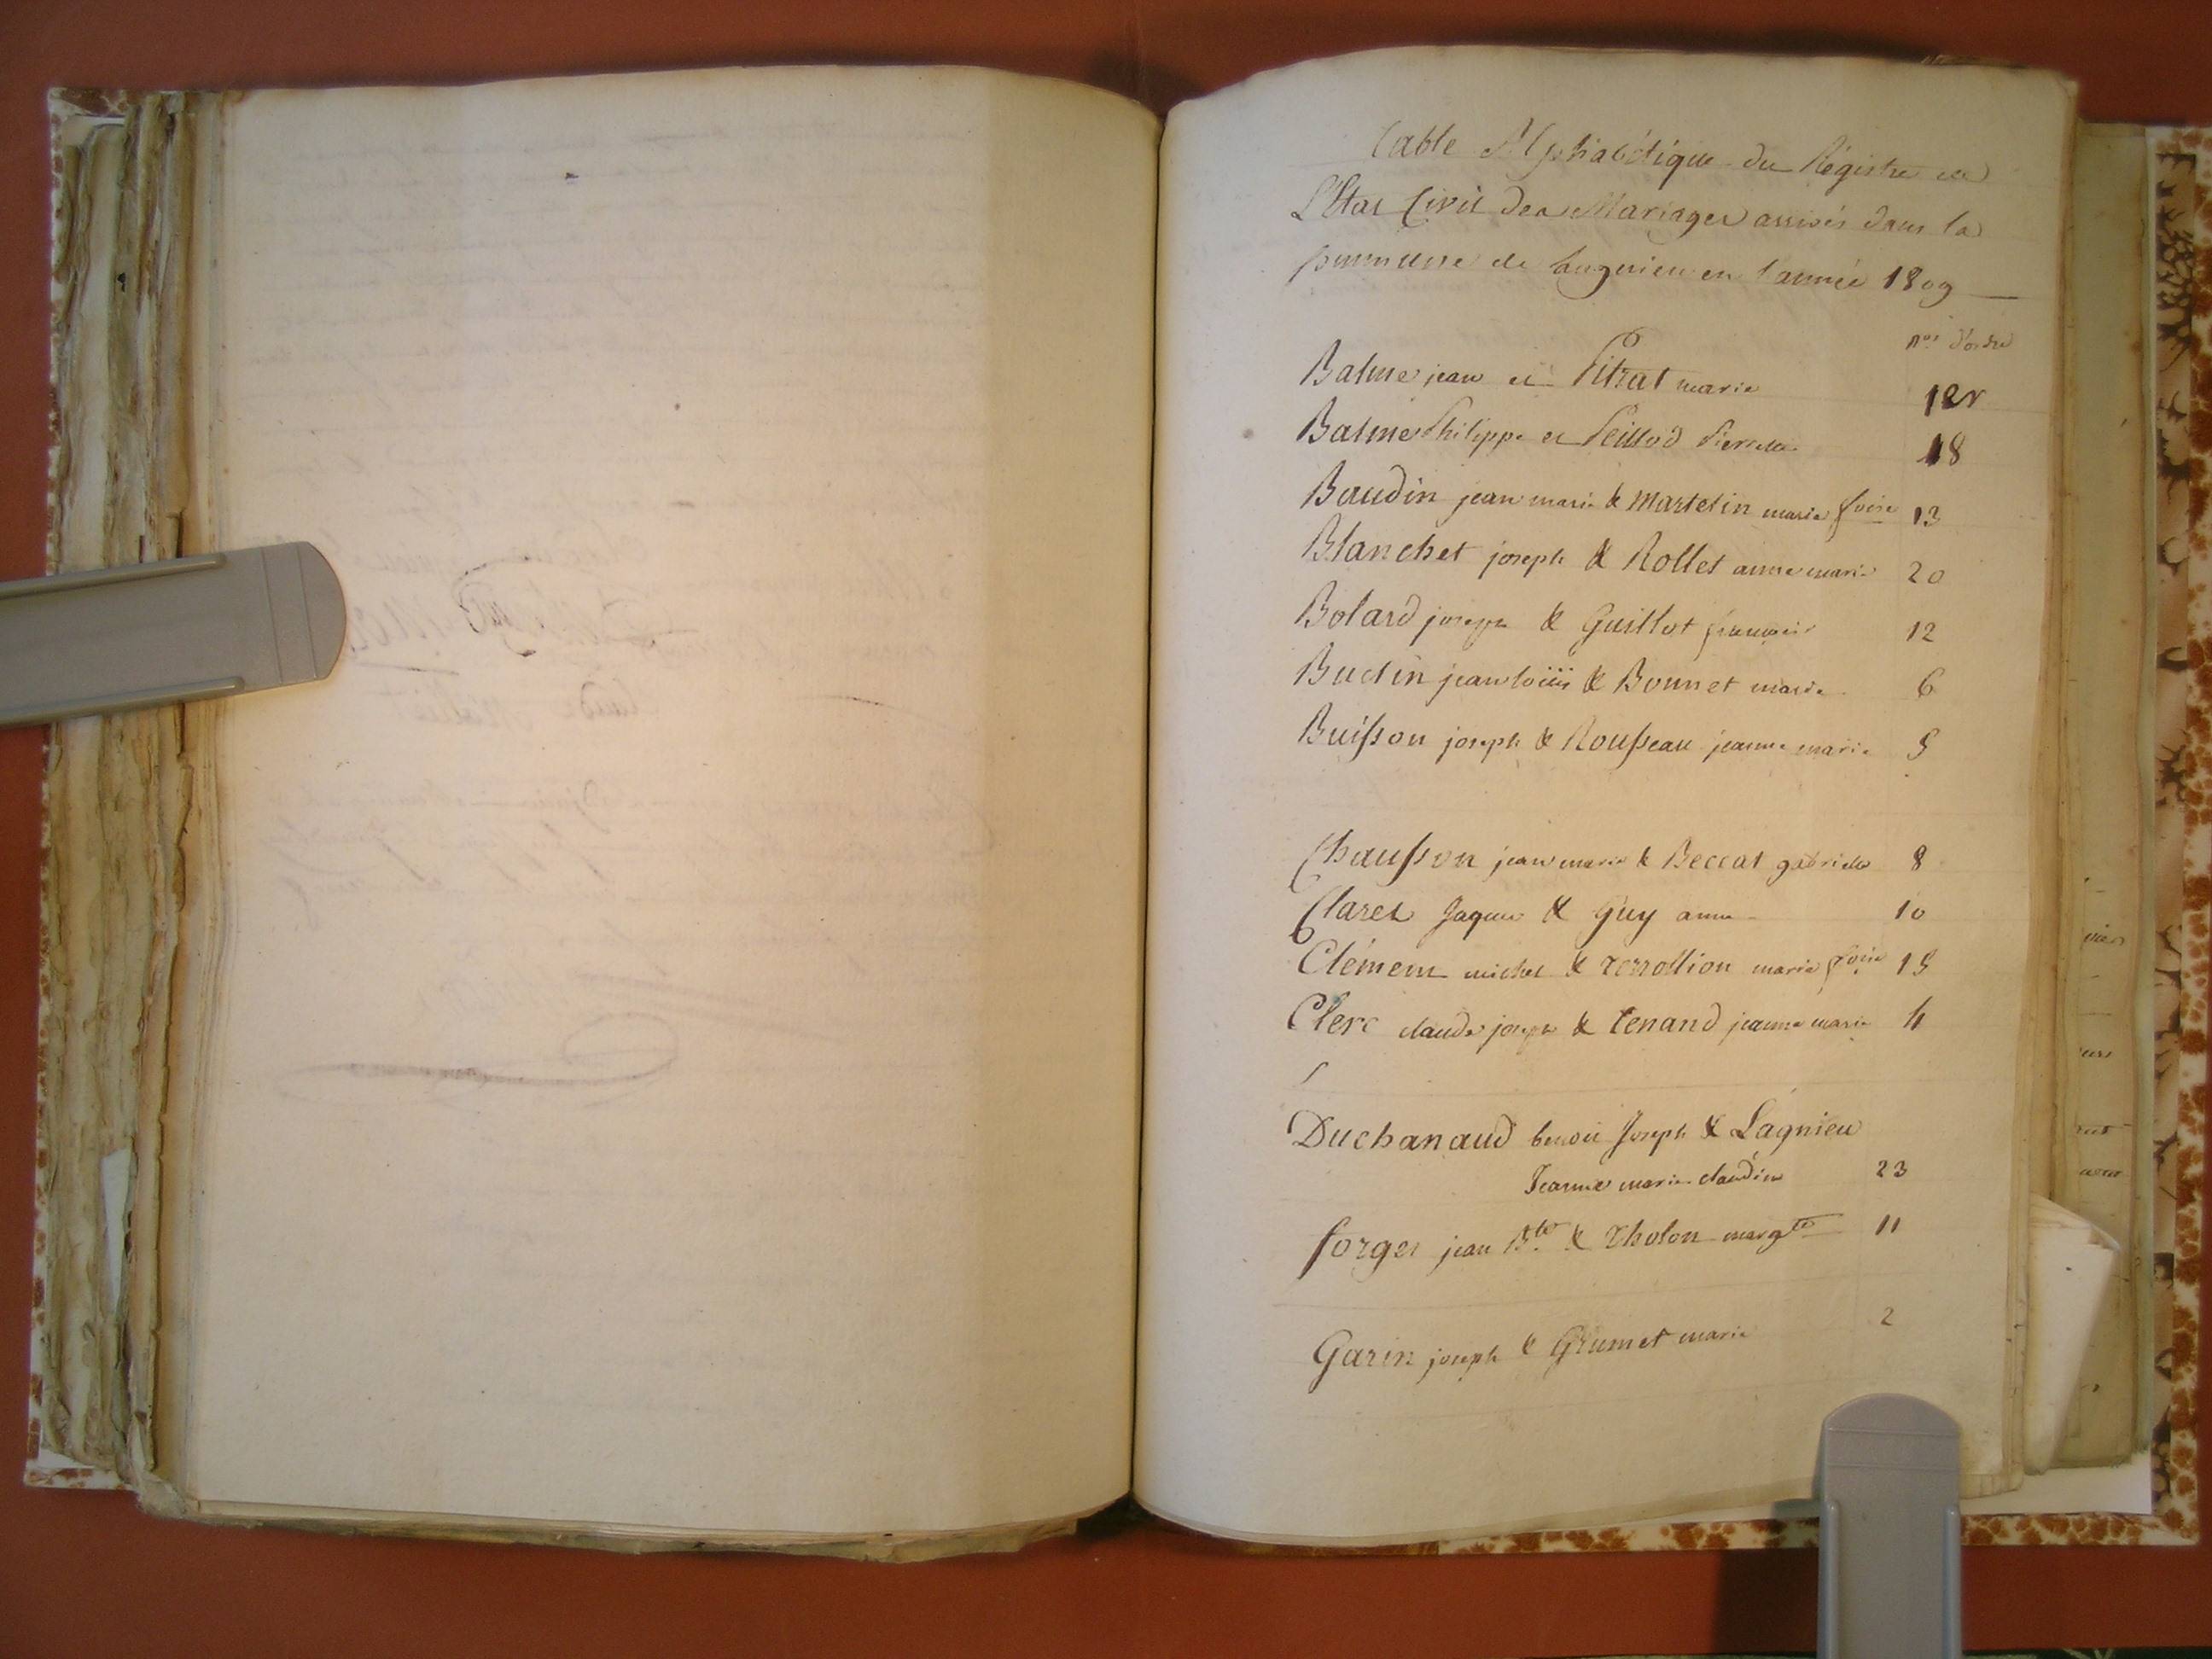 Table Alphabétique du Régistre de
L'Etat Civil des Mariages arrivés dans la
Commune de Lagnieu en l'année 1809
nos d'ordre
Balme jean et Pitrat marie 1er
Balme Philippe et Peillod Pierrette 18
Baudin jean marie & Martelin marie froise 13
Blanchet joseph & Rollet anne marie 20
Bolard joseph & Guillot françoise 12
Budin jean loüis & Bonnet marie 6
Buisson joseph & Rousseau jeanne marie 5
Chausson jean marie & Beccat gabrielle 8
Claret Jaques & Guy anne 10
Clément michel & rerrollion marie froise 15
Clerc claude joseph & tenand jeanne marie 4
Duchanaud benoit Joseph & Lagnieu
Jeanne marie claudine 23
forges jean Bte & Tholon margte 11
Garin joseph & Grumet marie 2